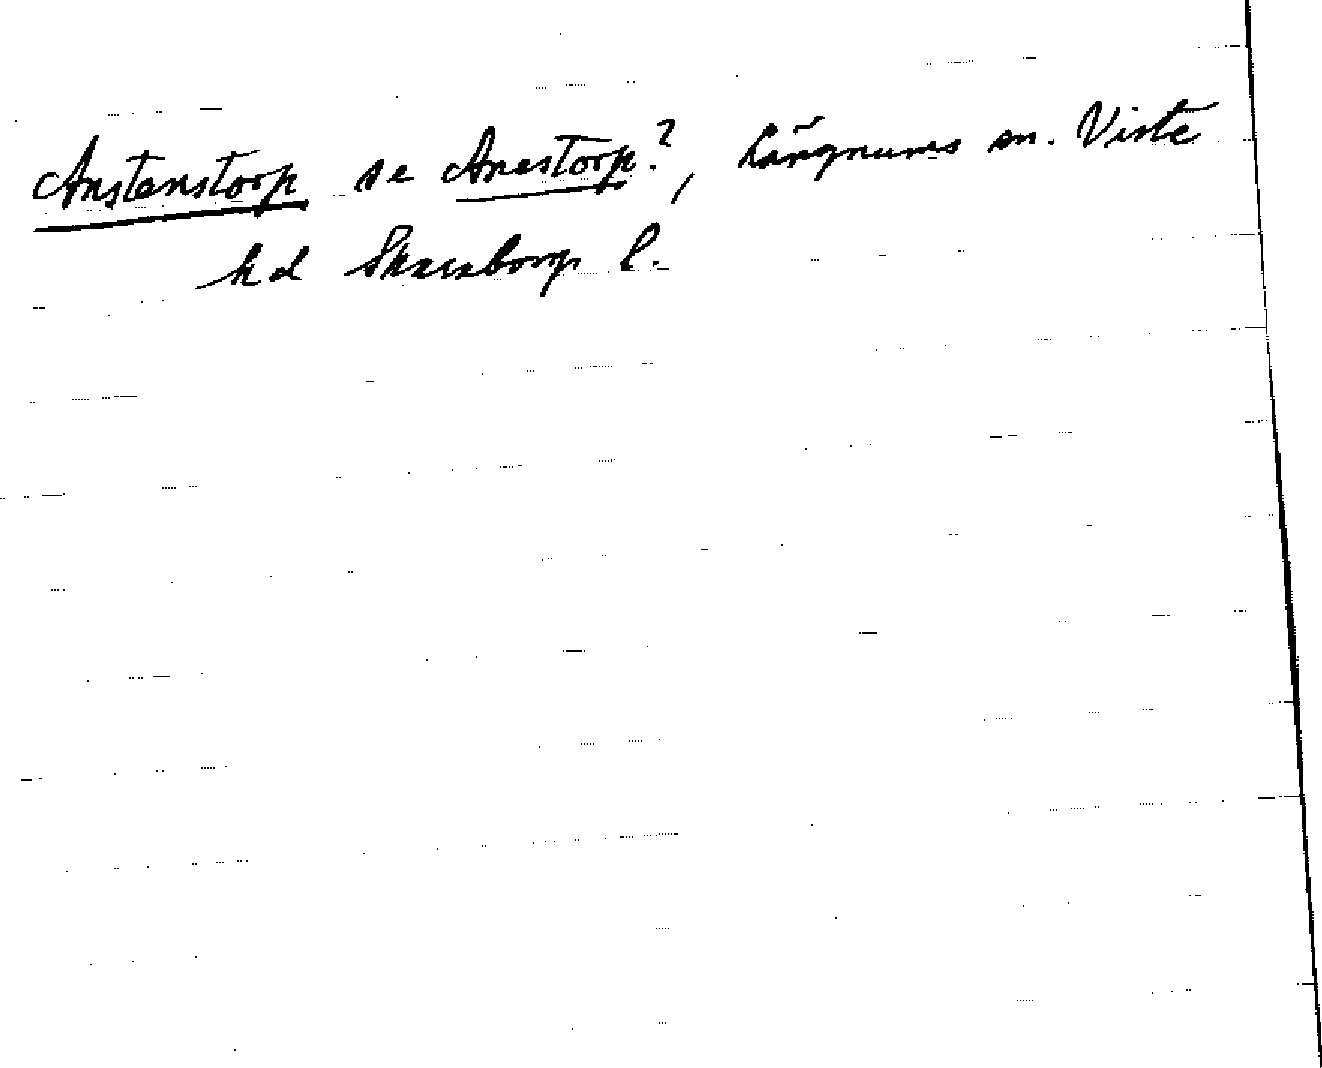 Anstenstorp se Anestorp?, Längnums sn. Viste
hd Skaraborgs l.